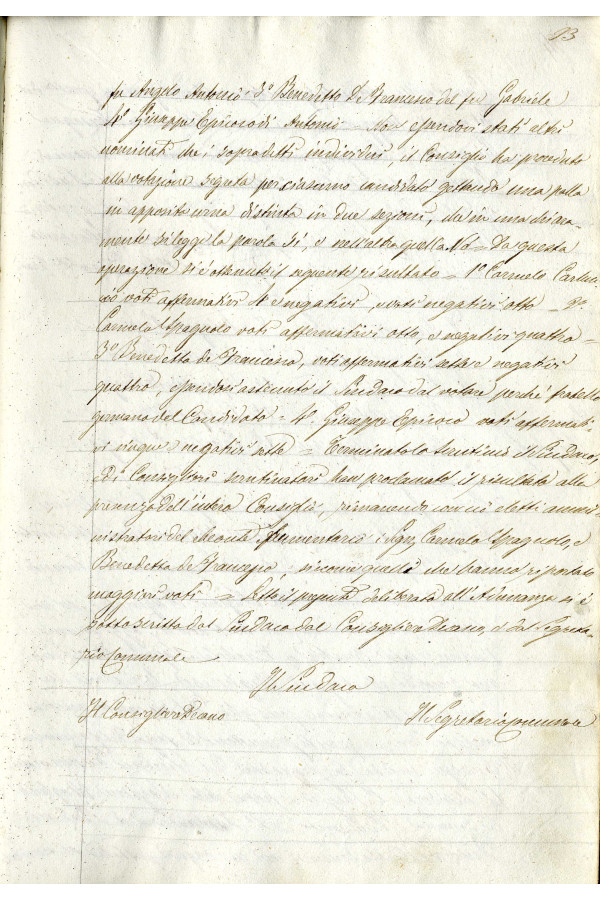 93
fu Angelo Antonio 3º Benedetto De Francesco del fu Gabriele
4º Giuseppe Epicoco di Antonio = Non essendovi stati altri
nominati che i sopradetti individui, il Consiglio ha proceduto
alla votazione segreta per ciascuno candidato gettando una palla
in apposita urna distinta in due sezioni, che in una chiara-
mente si legge la parola Si, e nell'altra quella No = Da questa
operazione si è ottenuto il seguente risultato = 1º Carmelo
voti affermativi 4 e negativi, voti negativi otto = 2º
Carmelo Spagnolo voti affermativi otto, e negativi quattro =
3º Benedetto de Francesco, voti affermativi sette e negativi
quattro, essendosi astenuto il Sindaco dal votare perchè fratello
germano del Candidato = 4º Giuseppe Epicoco voti affermati-
vi cinque e negativi sette = Terminato lo scrutinio il Sindaco,
ed i Consiglieri scrutinatori han proclamato il risultato alla
presenza dell'intero Consiglio, rimanendo con ciò eletti ammi-
nistratori del Monte Frumentario i Sigri Carmelo Spagnolo, e
Benedetto de Francesco, siccome quelli che hanno riportato
maggiori voti = Letto il presente deliberato all'Adunanza si è
sottoscritto dal Sindaco dal Consigliere Decano, e dal Segreta-
rio Comunale
Il Sindaco
Il Consigliere Decano Il Segretario Comunale